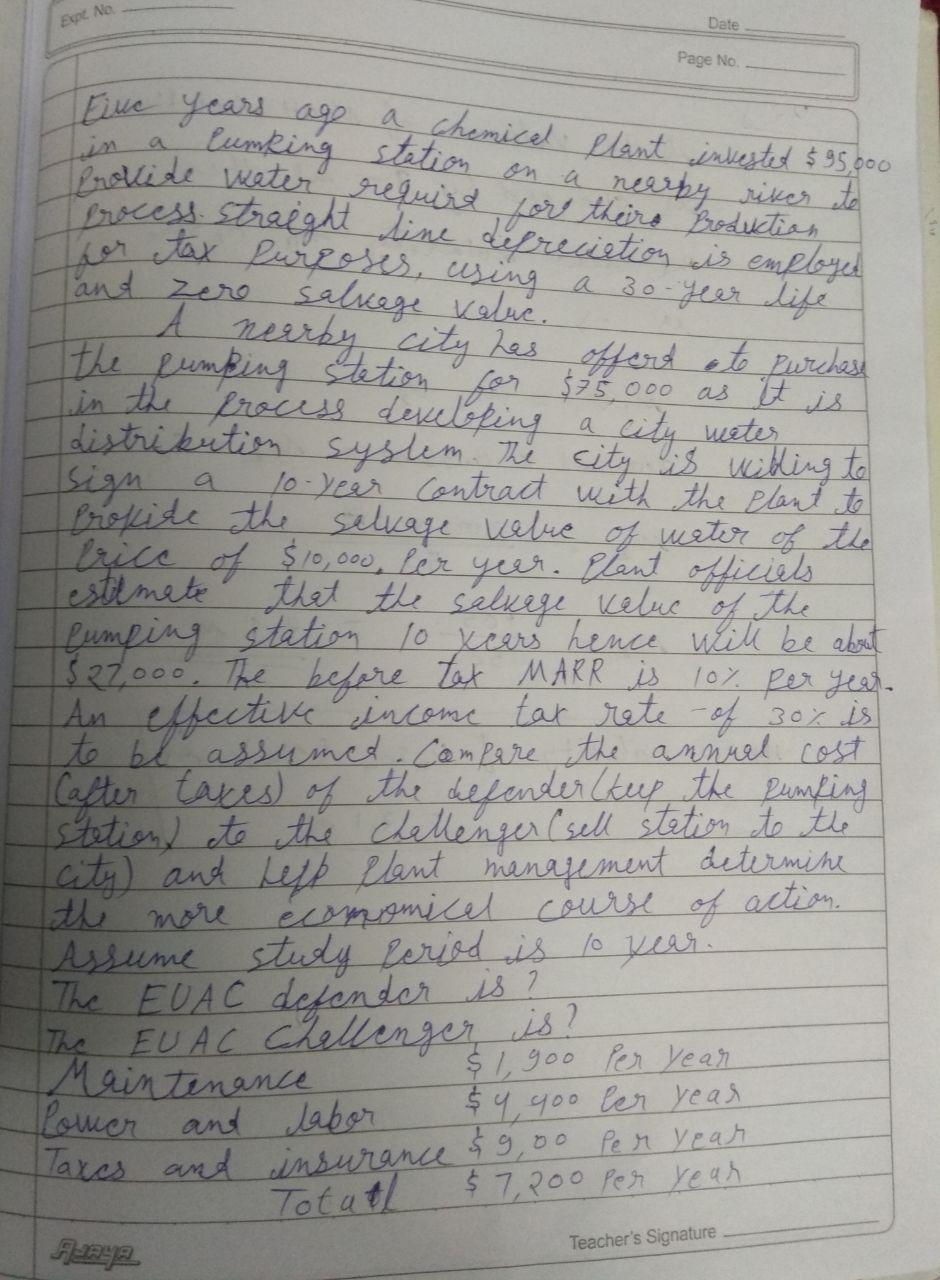 Expt. No.
Date
Page No.
Five years ago a chemical Plant invested $95,000
in a Pumking station on a nearby river to
Provide water requird for their Production
Process. straight line depreciation is employed
for tax Purposes, using a 30-year life
and zero salvage value.
A nearby city has offerd to Purchase
the pumping station for $75,000 as it is
in the Process developing a city water
distribution system. The city is willing to
sign a 10-year contract with the Plant to
Provide the salvage value of water of the
Price of $10,000, Per year. Plant officials
estimate that the salvage value of the
pumping station 10 years hence will be about
$27,000. The before tax MARR is 10% Per year.
An effective income tax rate of 30% is
to be assumed. Compare the annual cost
(after taxes) of the defender (keep the pumping
station) to the challenger (sell station to the
city) and help Plant management determine
the more economical course of action.
Assume study Period is 10 year.
The EUAC defender is?
The EUAC Challenger is?
Maintenance $1,900 Per Year
Power and labor $4,400 Per Year
Taxes and insurance $9,00 Per Year
Total $7,200 Per Year
Teacher's Signature
AJAYA